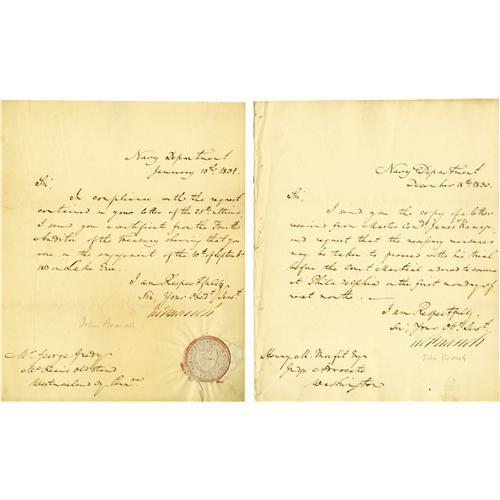 Navy Department
January 13th. 1831.
Sir,
In compliance with the request
contained in your letter of the 20th ultimo,
I send you a certificate from the Fourth
Auditor of the Treasury showing that you
were in the engagement of the 10th of Septembr
on Lake Erie.
I am Respectfully
Sir, Your Obdt. Servt.
John Branch
Mr George
McKeans Old Stand
Westmoreland Cy
Navy Department
December 18th 1830.
Sir,
I send you the copy of a letter
received from Master Comdt. James Ramage
and request that the necessary measures
may be taken to proceed with his trial
before the Court Martial ordered to convene
at Philadelphia on the first monday of
next month.
I am Respectfully,
Sir, Your Obt. Servt.
John Branch
Henry M. Esq
Judge Advocate
Washington